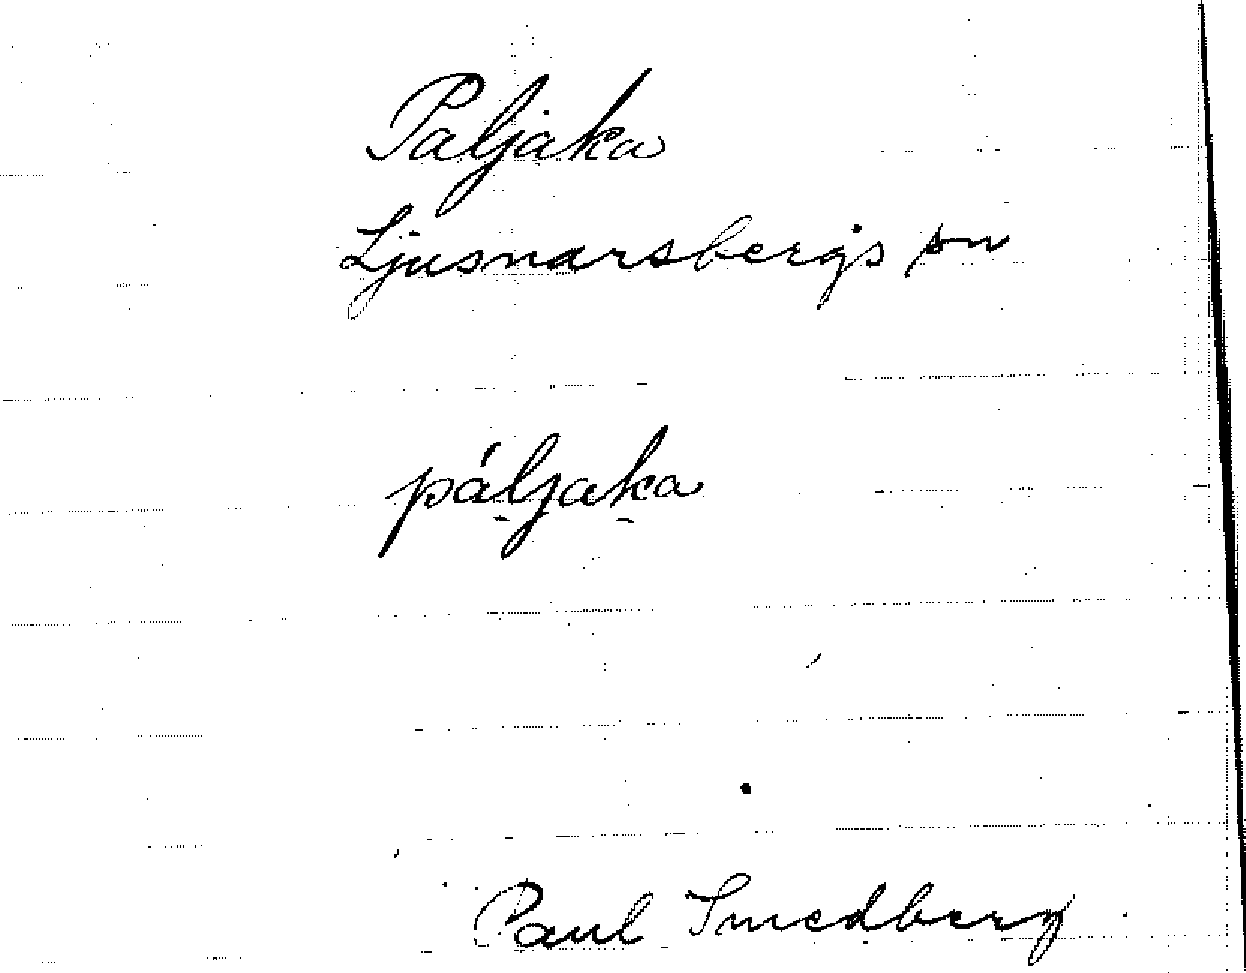 Paljaka
Ljusnarsbergs sn
páljaka
Paul Smedberg